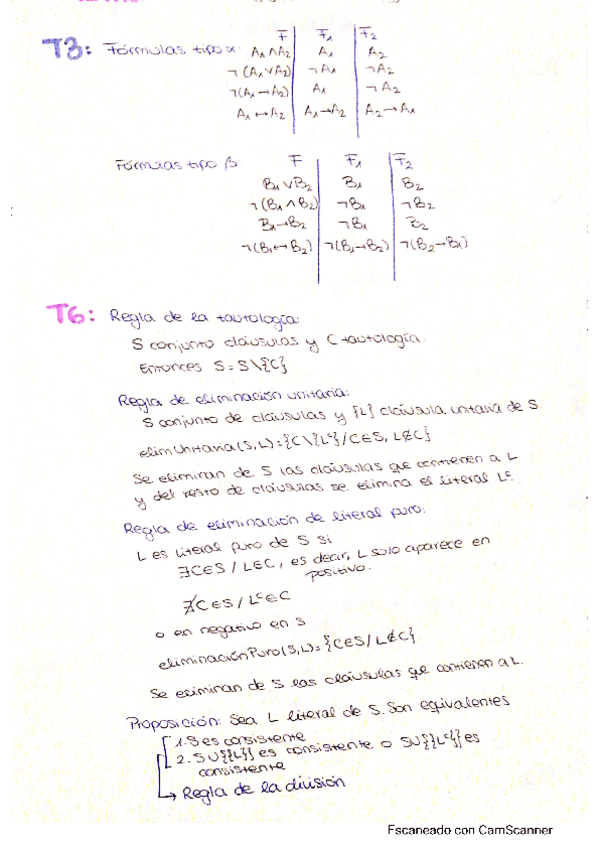 F F₁ F₂
T3: Fórmulas tipo α: A₁∧A₂ A₁ A₂
¬(A₁∨A₂) ¬A₁ ¬A₂
¬(A₁→A₂) A₁ ¬A₂
A₁↔A₂ A₁→A₂ A₂→A₁
Fórmulas tipo β: F F₁ F₂
B₁∨B₂ B₁ B₂
¬(B₁∧B₂) ¬B₁ ¬B₂
B₁→B₂ ¬B₁ B₂
¬(B₁↔B₂) ¬(B₁→B₂) ¬(B₂→B₁)
T6: Regla de la tautología:
S conjunto cláusulas y C tautología.
Entonces S=S\{C}
Regla de eliminación unitaria:
S conjunto de cláusulas y {L} cláusula unitaria de S
elimUnitaria(S,L)={C\{Lᶜ}/C∈S, L∉C}
Se eliminan de S las cláusulas que contienen a L
y del resto de cláusulas se elimina el literal Lᶜ.
Regla de eliminación de literal puro:
L es literal puro de S si
∃C∈S / L∈C, es decir, L solo aparece en
positivo.
∄C∈S / Lᶜ∈C
o en negativo en S
eliminaciónPuro(S,L)={C∈S/L∉C}
Se eliminan de S las cláusulas que contienen a L.
Proposición: Sea L literal de S. Son equivalentes
1. S es consistente
2. S∪{{L}} es consistente o S∪{{Lᶜ}} es
consistente
↳ Regla de la división
Escaneado con CamScanner